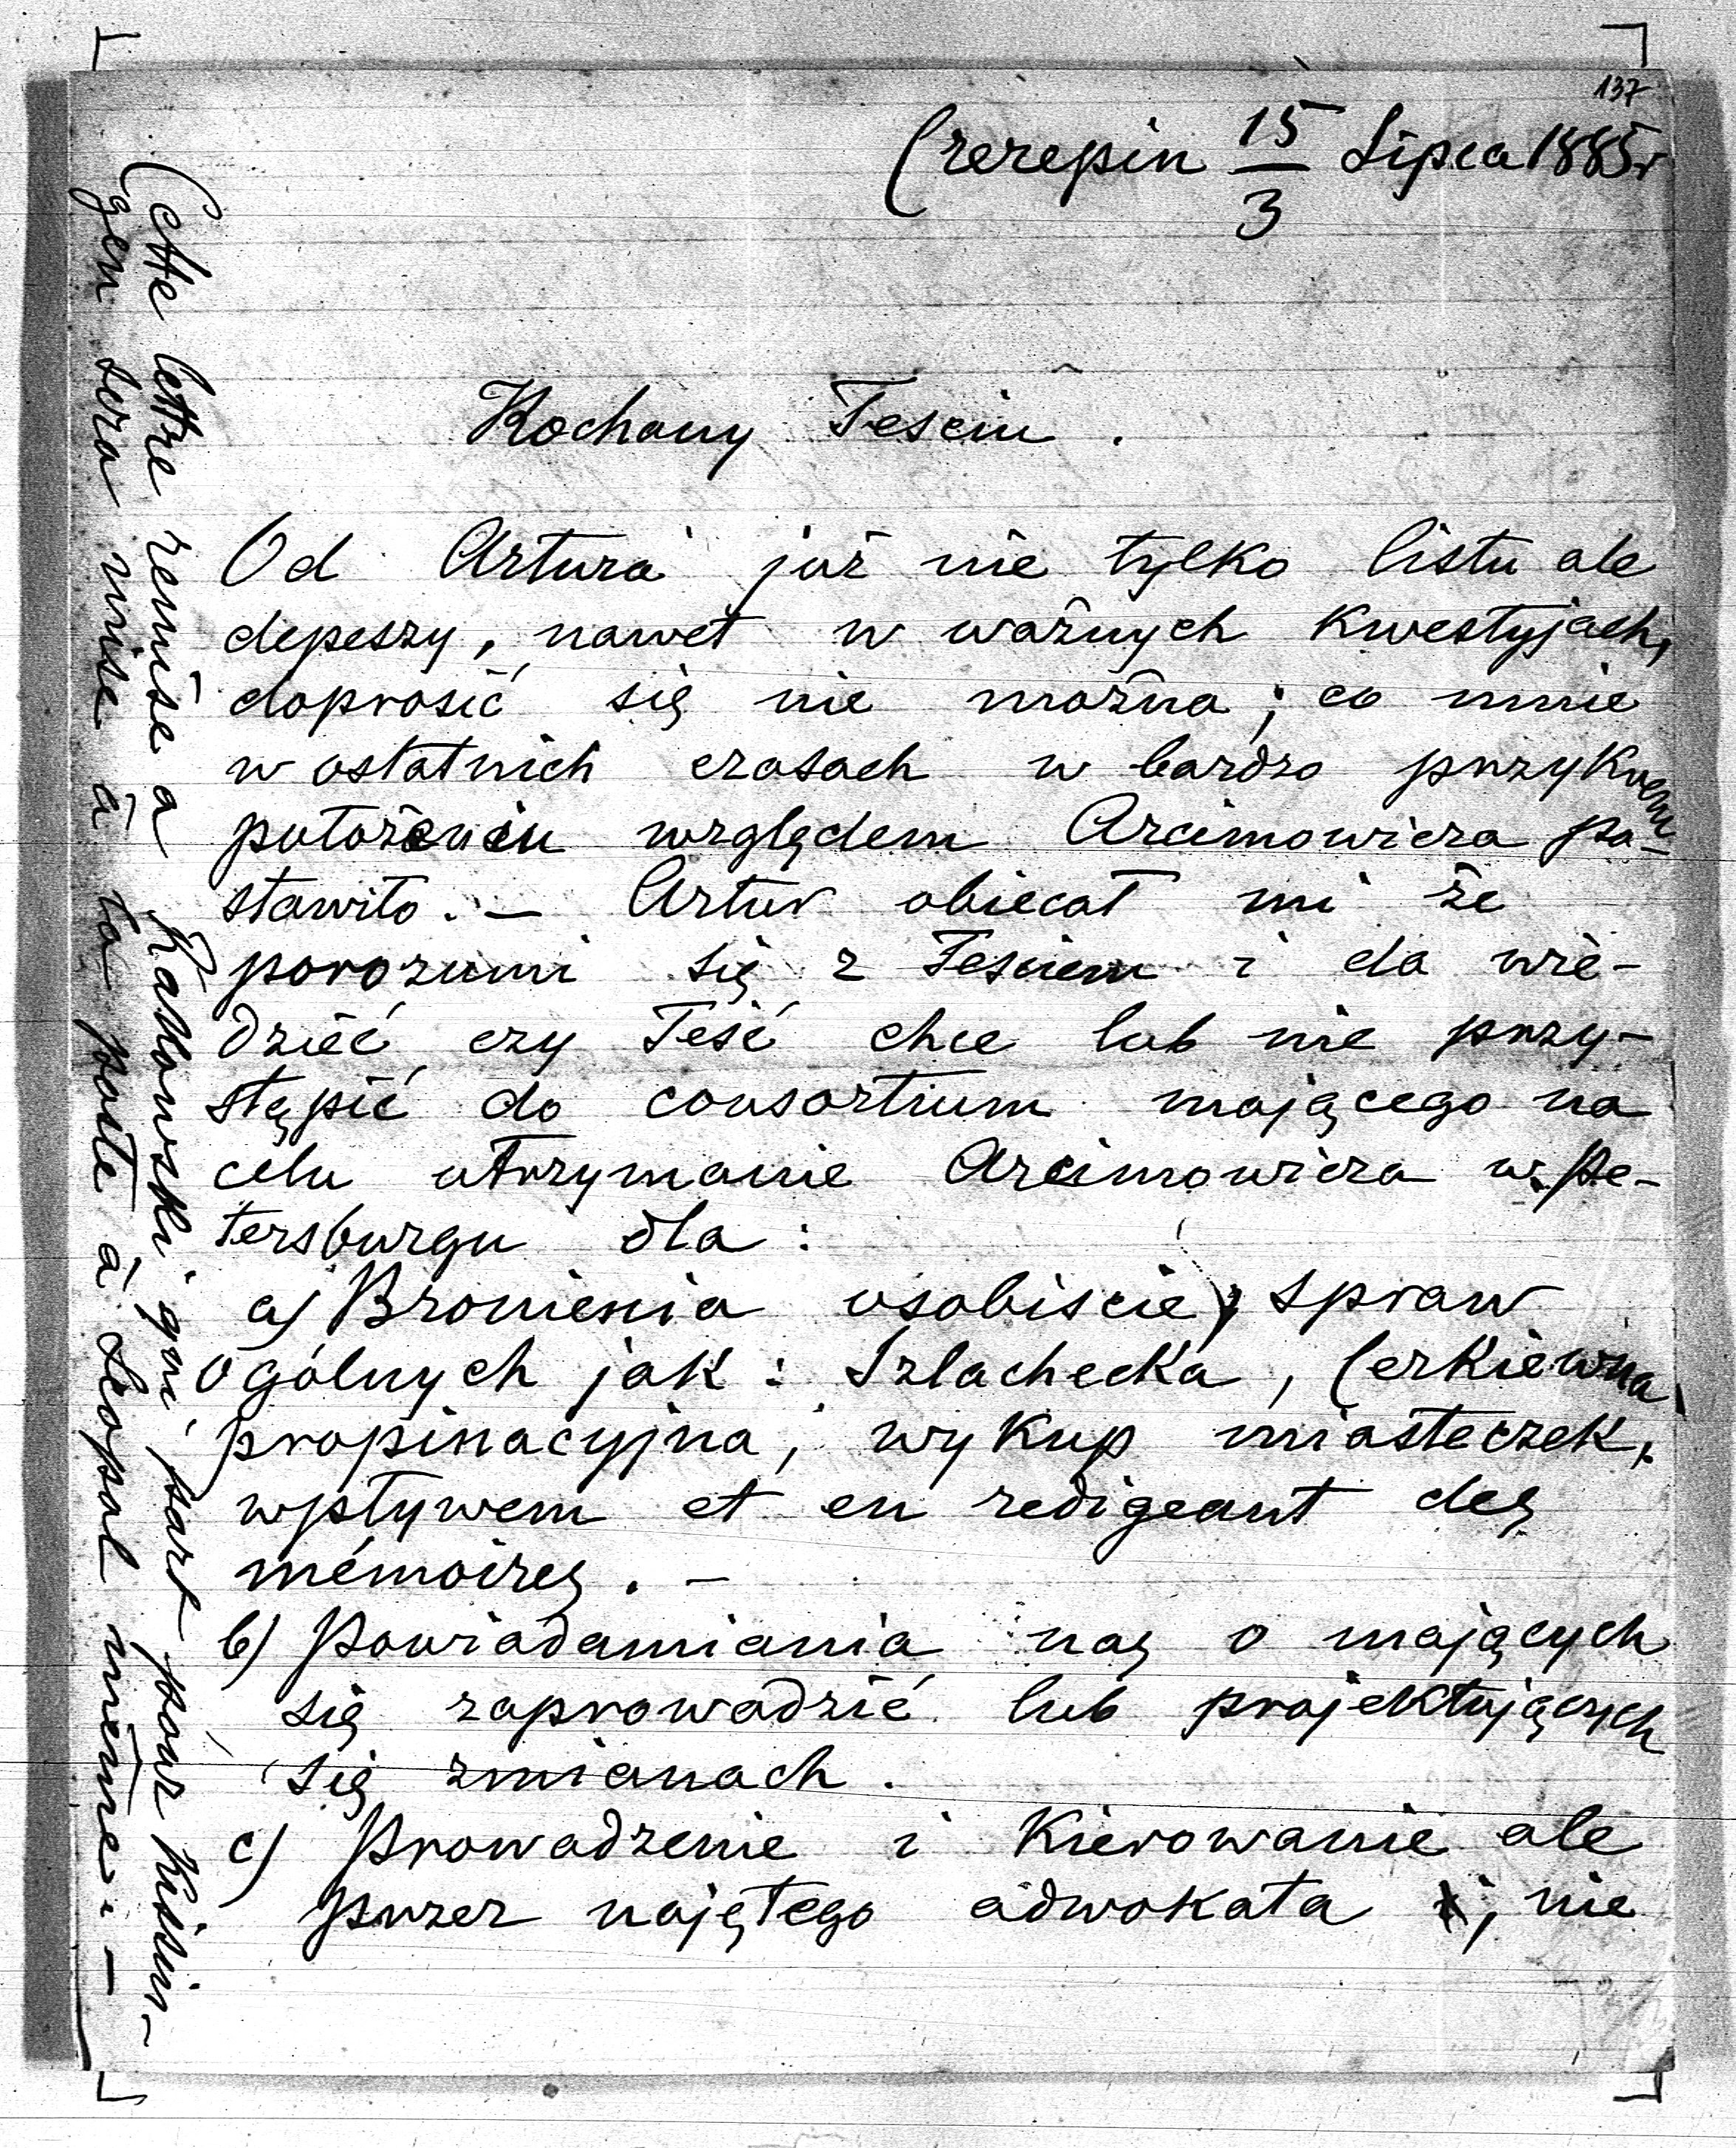 137
Czerepin 15/3 Lipca 1885r
Kochany Tesciu.
Od Artura już nie tylko listu ale
depeszy, nawet w ważnych kwestyjach,
doprosić się nie można; co mnie
w ostatnich czasach w bardzo przykrem
położeniu względem Arcimowicza po-
stawiło. — Artur obiecał mi że
porozumi się z Tesciem i da wie-
dzieć czy Teść chce lub nie przy-
stąpić do consortium mającego na
celu utrzymanie Arcimowicza w Pe-
tersburgu dla:
a) Bronienia osobiscie, spraw
ogólnych jak: Szlachecka, Cerkiewna
propinacyjna, wykup miasteczek,
wpływem et en redigeant des
mémoires. —
b) Powiadamiania nas o mających
się zaprowadzić lub projektujących
się zmianach.
c) Prowadzenie i Kierowanie ale
przez najętego adwokata; nie
Cette lettre remise a Rakowski qui part pour Kisin-
gen sera mise à la poste à Leopol même. —